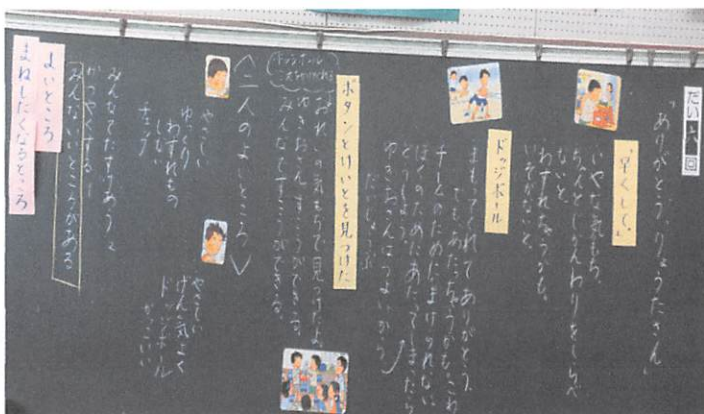 だい六回
「ありがとう、りょうたさん」
「早くして。」
いやな気もち。
ちゃんとじかんわりをしらべ
ないと。
わすれちゃうかも。
いそがないと。
ドッジボール
まもってくれてありがとう。
でも、あたっちゃうかも、こわ
チームのために、まけられない
ぼくのために、あたってしまったら
どうしよう。
ゆきおさんはつよいから
だいじょうぶ
ボタンとけいとを見つけた
おれいの気もちで見つけたよ。
ゆきおさん、すごうができる。
みんなですごうができる。
ドッジボール
〈二人のよいところ〉
やさしい
ゆっくり
わすれもの
しない
チェック
やさしい
げん気よく
ドッジボール
がっこいい
みんなでたすけあうと
かつやくする!
みんないいところがある
よいところ
まねしたくなるところ